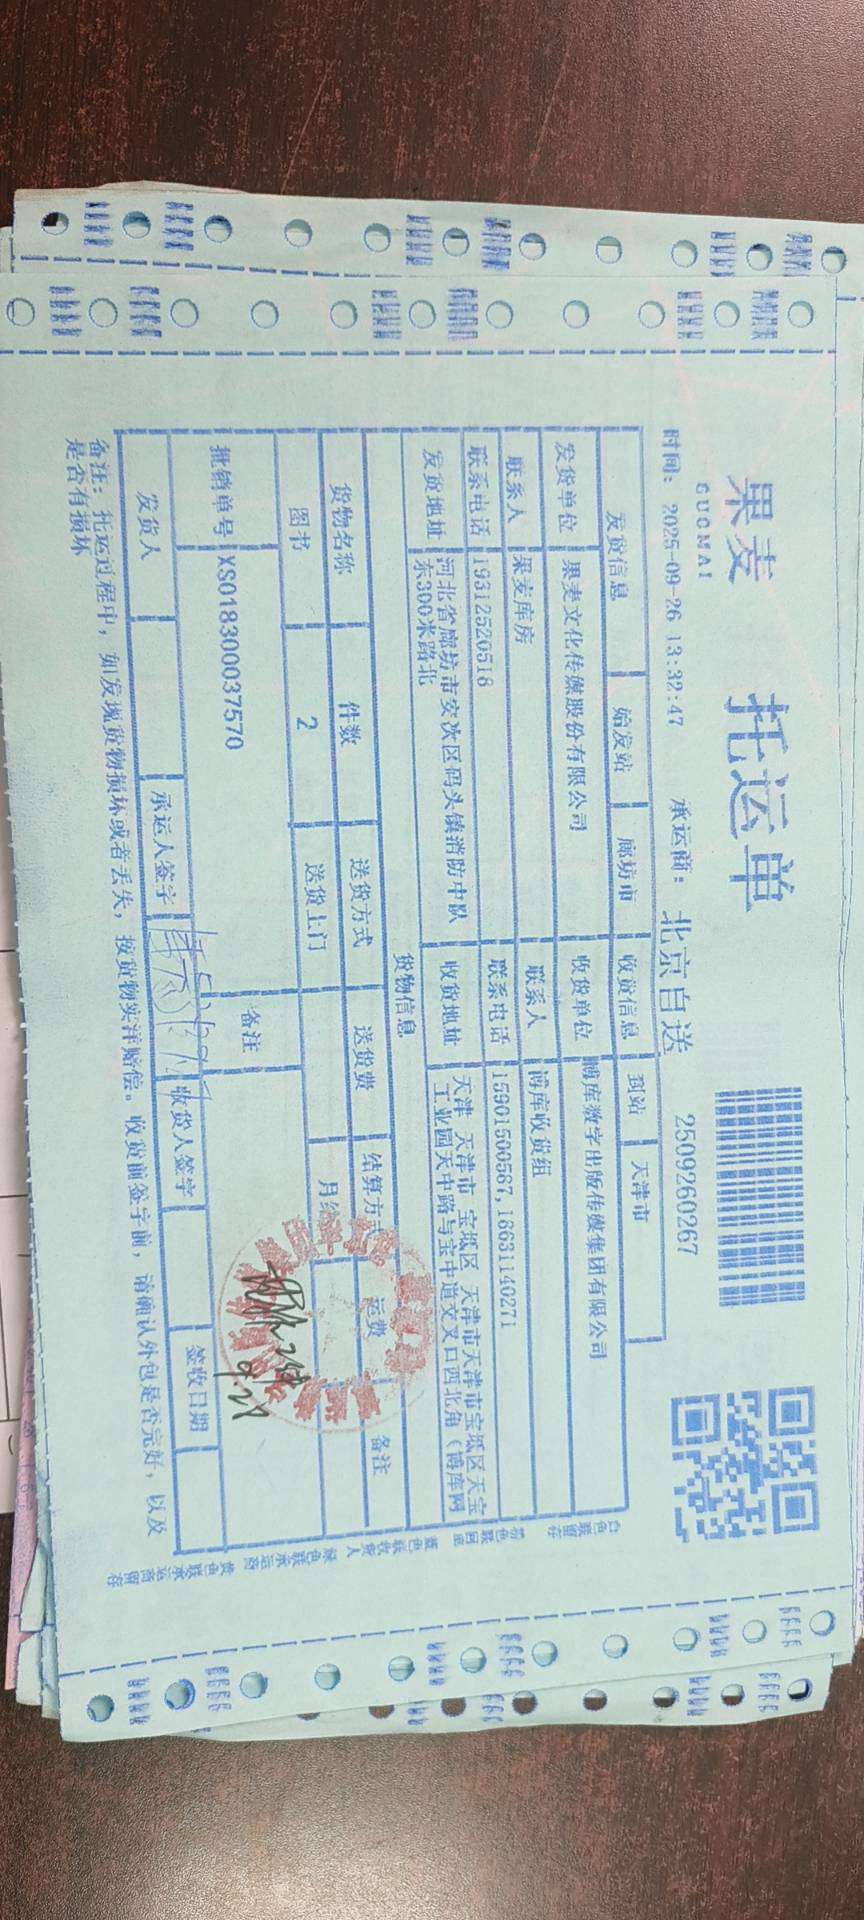 果麦
GUOMAI
托运单
时间: 2025-09-26 13:32:47 承运商: 北京自送 2509260267
发货信息 始发站 廊坊市 收货信息 到站 天津市
发货单位 果麦文化传媒股份有限公司 收货单位 博库数字出版传媒集团有限公司
联系人 果麦库房 联系人 博库收货组
联系电话 19312520518 联系电话 15901500587,18631140271
发货地址 河北省廊坊市安次区码头镇消防中队
东300米路北
收货地址 天津 天津市 宝坻区 天津市天津市宝坻区天宝
工业园天中路与宝中道交叉口西北角（博库网
货物信息
货物名称 件数 送货方式 送货费 结算方式 运费 备注
图书 2 送货上门 月结
批销单号 XS018300037570 备注
发货人 承运人签字 收货人签字 签收日期
备注: 托运过程中, 如发现货物损坏或者丢失, 按货物实洋赔偿。收货前签字前, 请确认外包是否完好, 以及
是否有损坏
9.26